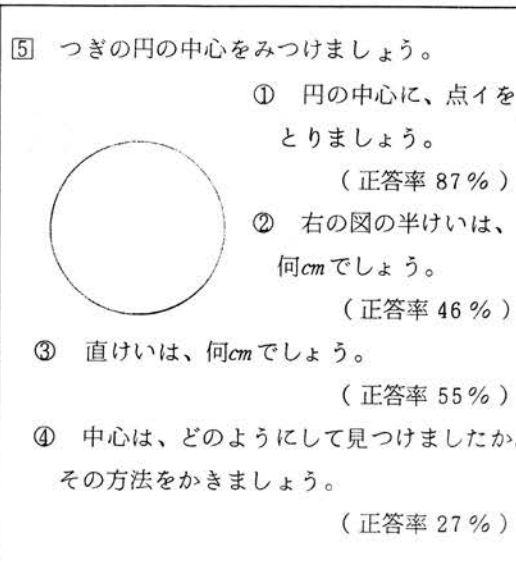 5 つぎの円の中心をみつけましょう。
① 円の中心に、点イを
とりましょう。
(正答率 87%)
② 右の図の半けいは、
何cmでしょう。
(正答率 46%)
③ 直けいは、何cmでしょう。
(正答率 55%)
④ 中心は、どのようにして見つけましたか。
その方法をかきましょう。
(正答率 27%)